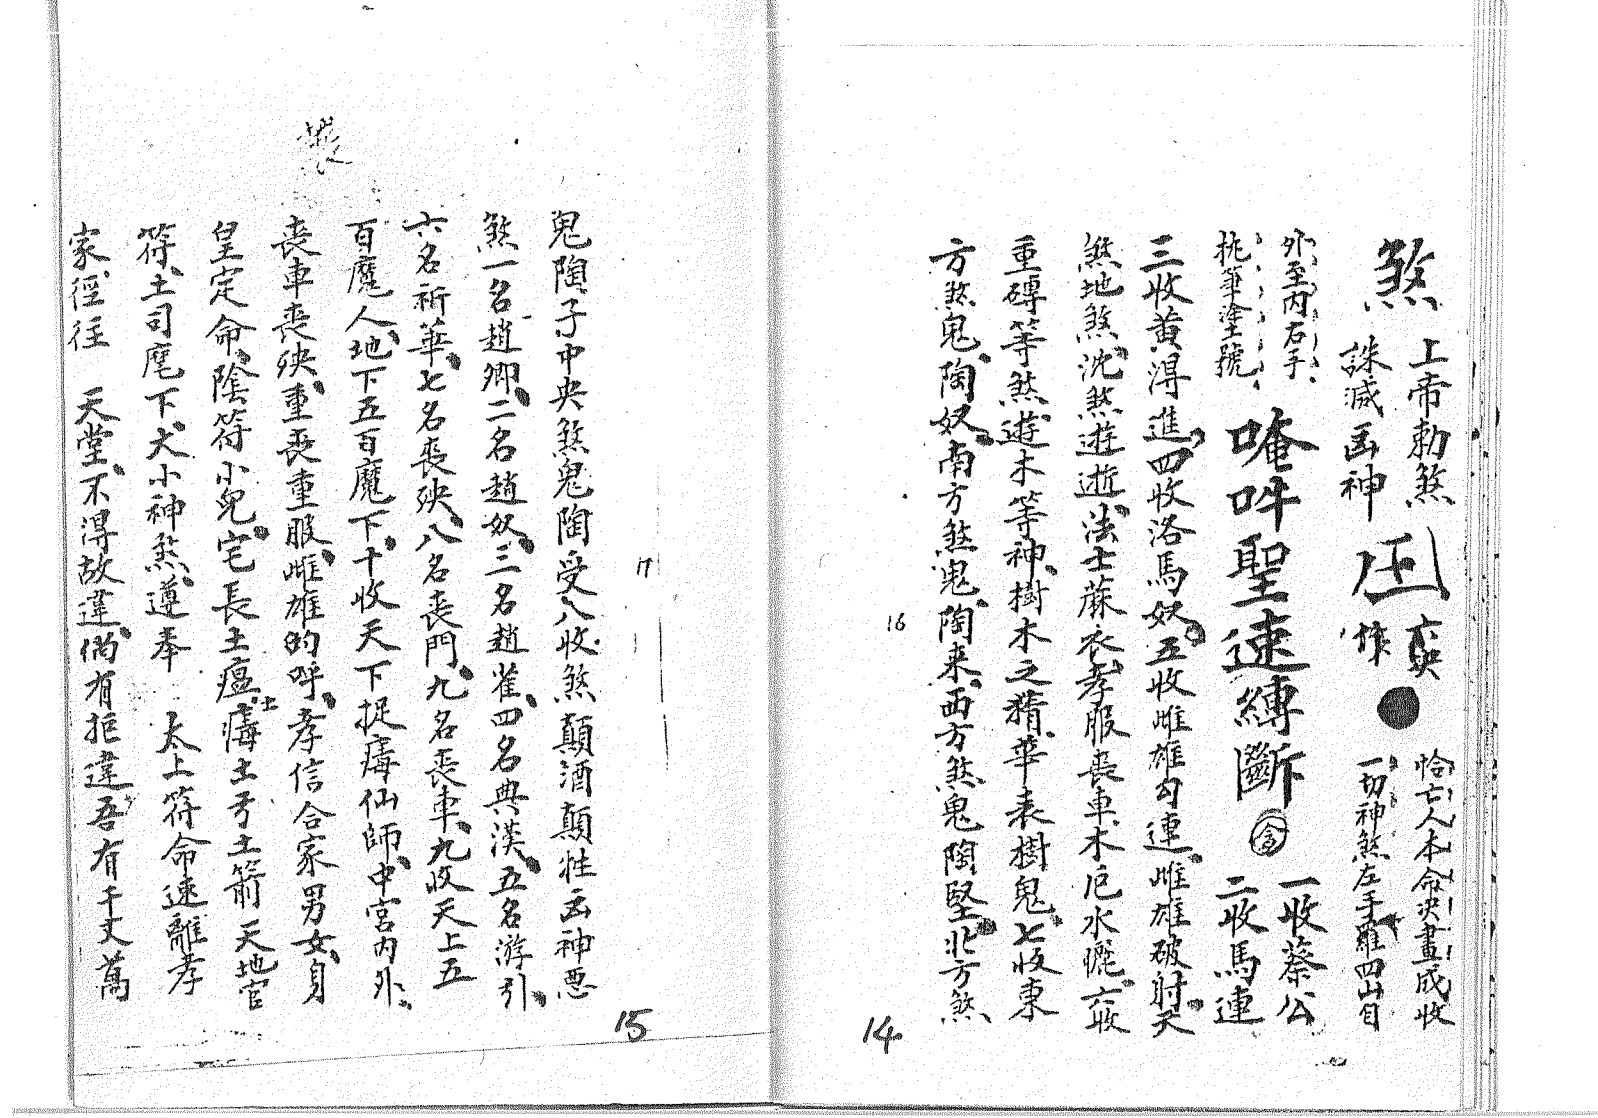 煞
上帝勅煞
誅滅凶神
作
恰亡人本命決畫成收
一切神煞左手羅四山目
外至內右手
執筆塗號
唵吽聖速縛斷
一收蔡公
二收馬連
三收黄得進四收洛馬奴五收雌雄勾連雌雄破射天
煞地煞沈煞遊逝法士蔴衣孝服喪車木厄水儺六收
重磚等煞遊木等神樹木之精華表樹鬼七收東
方煞鬼陶奴南方煞鬼陶来西方煞鬼陶堅北方煞
14
16
鬼陶子中央煞鬼陶受八收煞顛酒顛牲云神悪
煞一名趙卿二名趙奴三名趙雀四名典漢五名游引
六名祈華七名喪殃八名喪門九名喪車九收天上五
百魔人地下五百魔下十收天下捉瘏仙師中宮内外
喪車喪殃重喪重服雌雄的呼孝信合家男女身
皇定命陰符小兒宅長土瘟土瘏土弓土箭天地官
符土司麾下大小神煞遵奉 太上符命速離孝
家徑往 天堂不得故違倘有拒違吾有千丈萬
喪
17
15